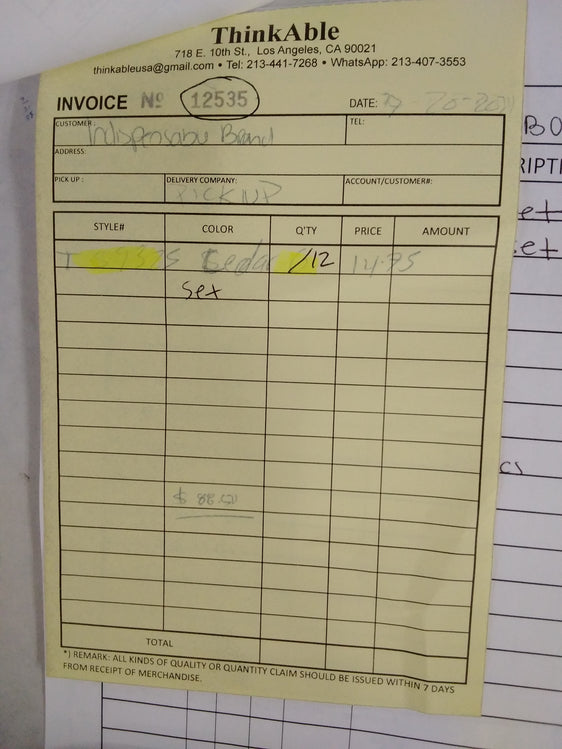 ThinkAble
718 E. 10th St., Los Angeles, CA 90021
thinkableusa@gmail.com • Tel: 213-441-7268 • WhatsApp: 213-407-3553
INVOICE Nº 12535 DATE:
CUSTOMER: Brand TEL:
ADDRESS:
PICK UP : DELIVERY COMPANY: PICK UP ACCOUNT/CUSTOMER#:
STYLE# COLOR Q'TY PRICE AMOUNT
Cedar /12 14.75
Set
$ 88.50
TOTAL
*) REMARK: ALL KINDS OF QUALITY OR QUANTITY CLAIM SHOULD BE ISSUED WITHIN 7 DAYS
FROM RECEIPT OF MERCHANDISE.